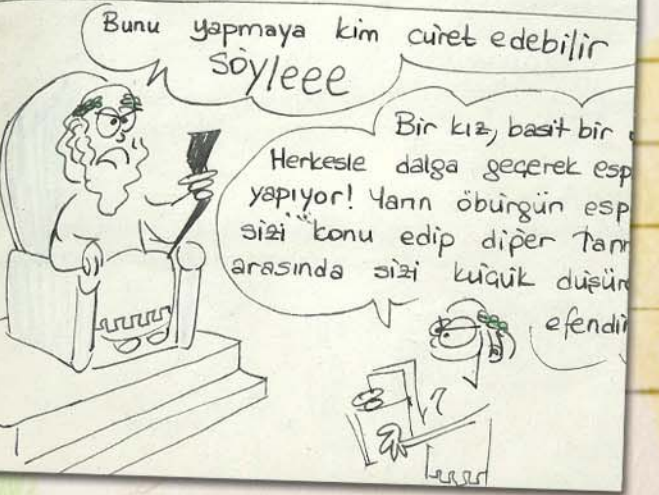 Bunu yapmaya kim cüret edebilir
Söyleee
Bir kız, basit bir
Herkesle dalga geçerek esp
yapıyor! Yarın öbürgün esp
sizi konu edip diğer Tanr
arasında sizi küçük düşür
efendi